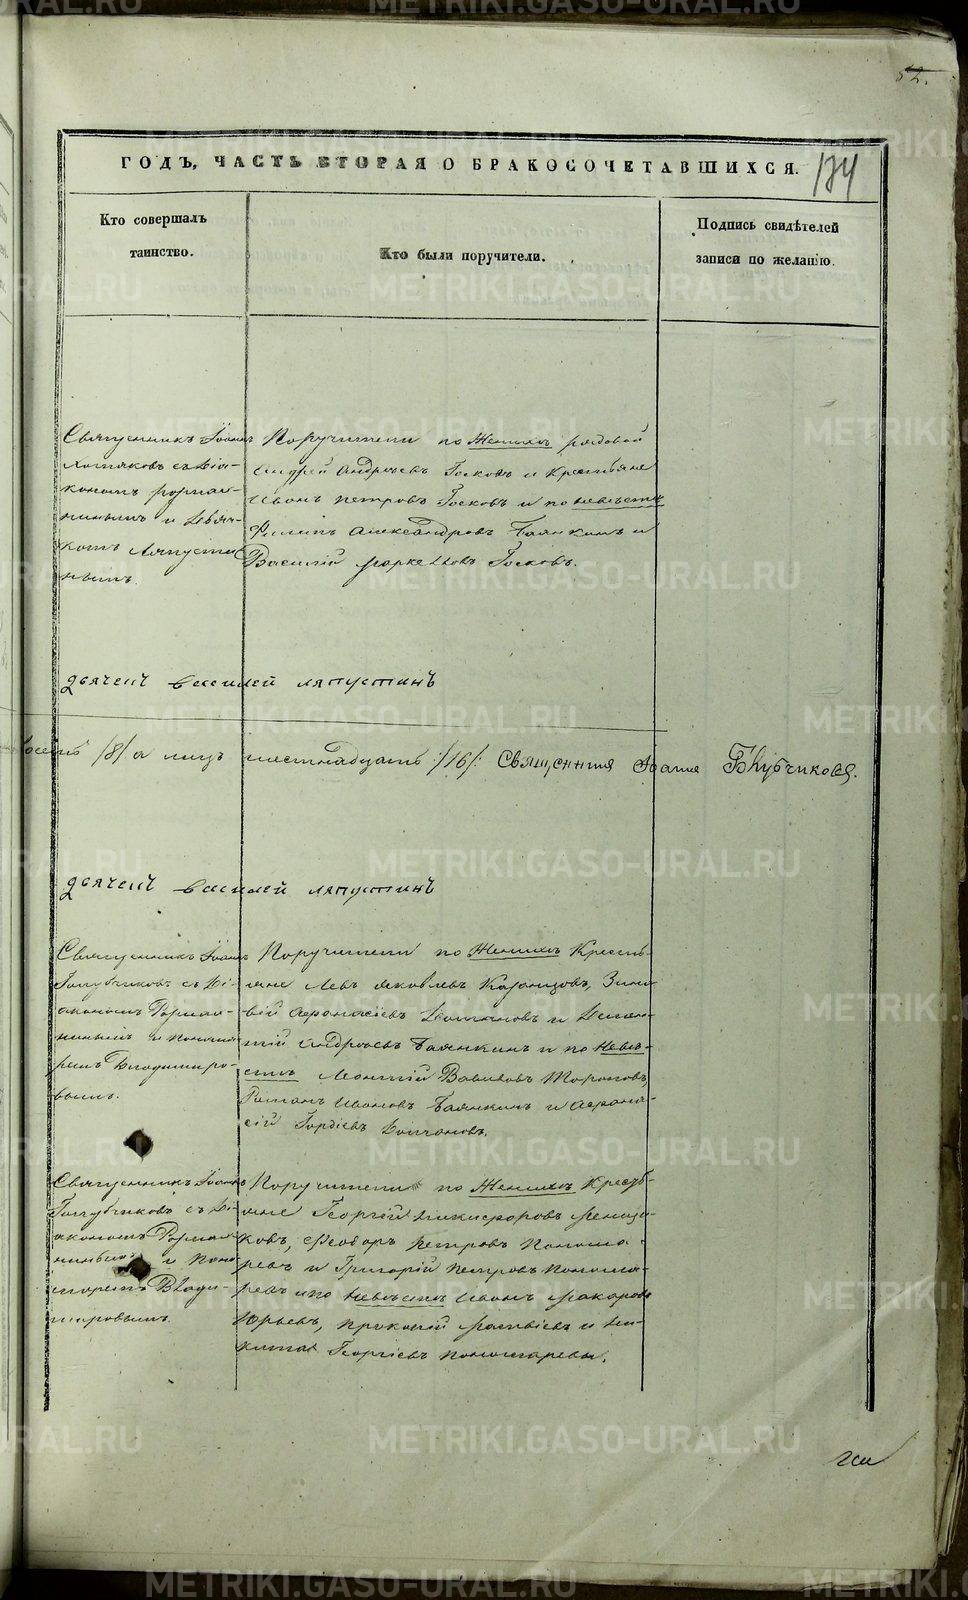 52.
174
ГОДЪ, ЧАСТЬ ВТОРАЯ О БРАКОСОЧЕТАВШИХСЯ.
Кто совершалъ
таинство.
Кто были поручители.
Подпись свидѣтелей
записи по желанію.
Священникъ Іоаннъ
Хотяковъ съ Діа-
кономъ
и Дьяч-
комъ Ляпусти
нымъ.
Поручители по Женихѣ рядовой
Андрей Андреевъ Госковъ и Крестьяне
Иванъ Петровъ Госковъ и по невѣстѣ
Филипъ Александровъ Баянкинъ и
Василій Маркеловъ Госковъ.
дьячекъ василей ляпустинъ
/8/ а лицъ шестнадцать /16/: Священникъ Іоаннъ
дьячекъ василей ляпустинъ
Священникъ Іоаннъ
Голубчиковъ съ Ді-
акономъ
и Понома
ремъ Владиміро-
вымъ.
Поручители по Женихѣ Кресть-
яне Левъ Яковлевъ Казанцовъ, Зино
вій Афонасіевъ Долгановъ и
Андреевъ Баянкинъ и по Невѣ-
стѣ Вавиловъ Тороповъ,
Романъ Ивановъ Баянкинъ и Афона-
сій Гордіевъ
Священникъ Іоаннъ
Голубчиковъ съ Ді-
акономъ
и Поно
маремъ Влади-
міровымъ.
Поручители по Женихѣ Кресть-
яне Георгій Никифоровъ
ковъ, Феодоръ Петровъ Понома-
ревъ и Григорій Петровъ Понома-
ревъ и по Невѣстѣ Иванъ Макаровъ
Юрьевъ, Прокопій Матвѣевъ и Ни-
кита Георгіевъ Пономаревы.
METRIKI.GASO-URAL.RU